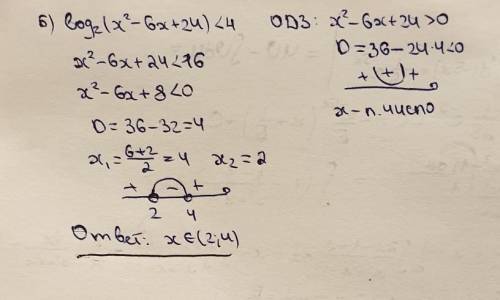 б) log₂(x²-6x+24)<4
x²-6x+24<16
x²-6x+8<0
D=36-32=4
x₁=(6+2)/2=4 x₂=2
+ - +
2 4
Ответ: x∈(2;4)
ОДЗ: x²-6x+24>0
D=36-24·4<0
+ (+) +
x-л.число